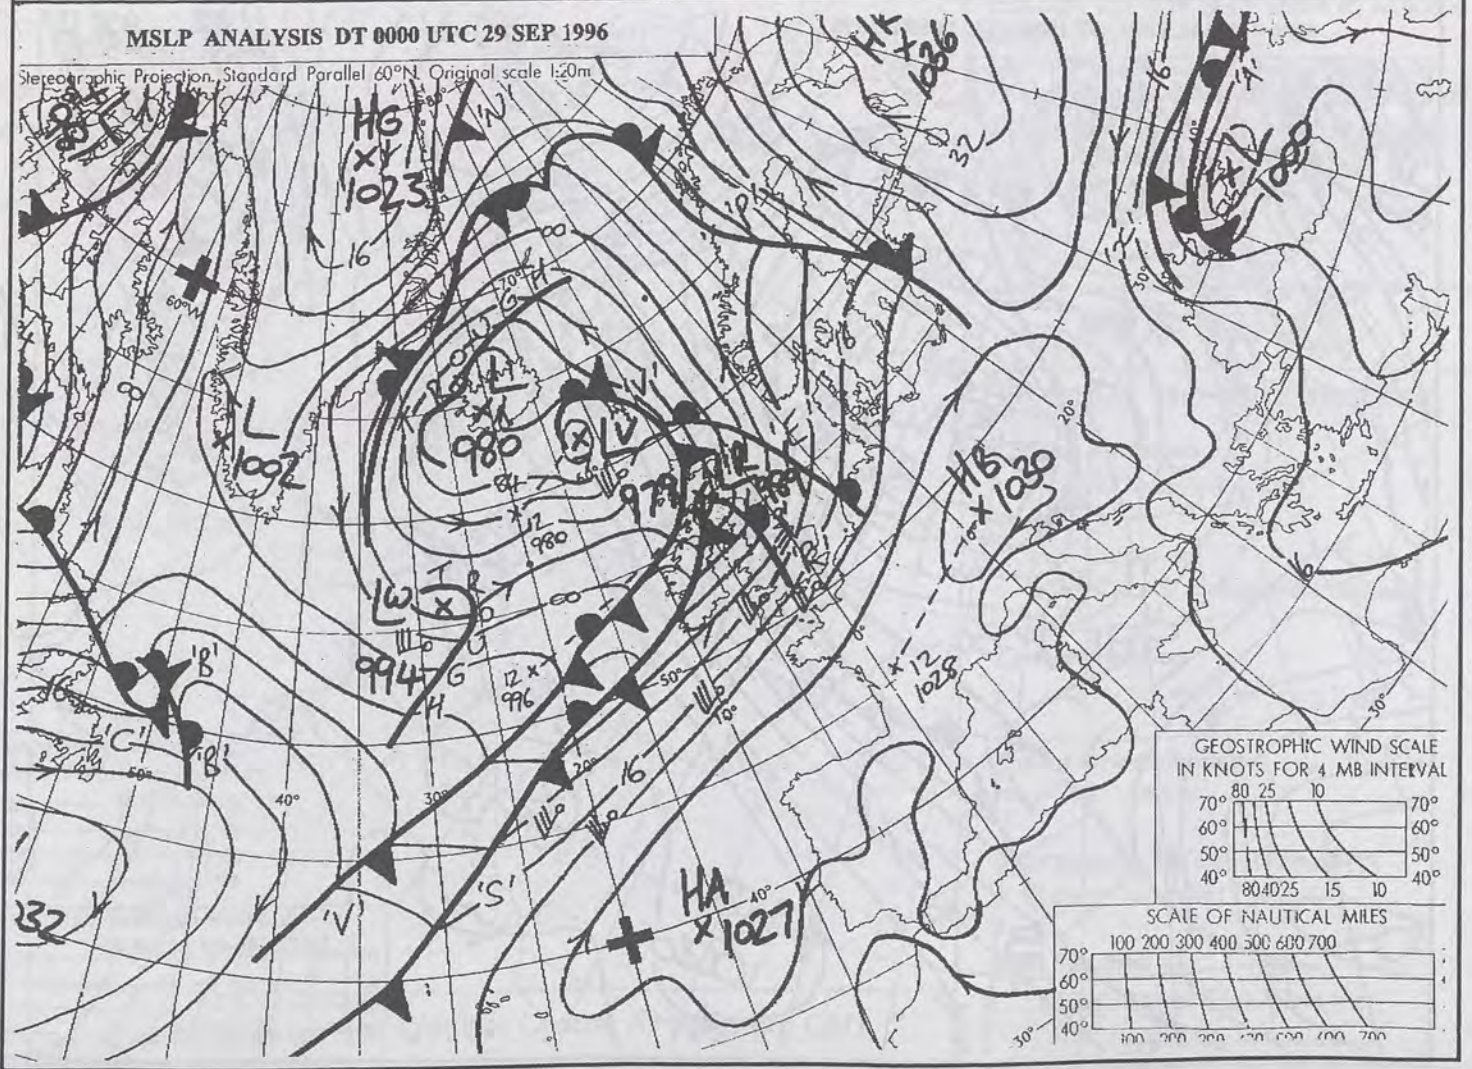 MSLP ANALYSIS DT 0000 UTC 29 SEP 1996
Stereographic Projection, Standard Parallel 60°N, Original scale 1:20m
HG
X
1023
'N'
X
1036
32
16
'A'
1000
16
60°
'P'
00
70°
8
L
X
1002
L
X
980
X
LV
979
'V'
989
84
X
12
980
00
16
20°
HB
X 1030
10°
LW
X
994
T
R
O
U
G
H
12 X
996
50°
10°
0°
X 12
1028
30°
'B'
'B'
'C'
50°
40°
30°
20°
16
'S'
'V'
032
HA
X 1027
40°
30°
GEOSTROPHIC WIND SCALE
IN KNOTS FOR 4 MB INTERVAL
80 25 10
70° 70°
60° 60°
50° 50°
40° 40°
80 40 25 15 10
SCALE OF NAUTICAL MILES
100 200 300 400 500 600 700
70°
60°
50°
40°
100 200 300 400 500 600 700